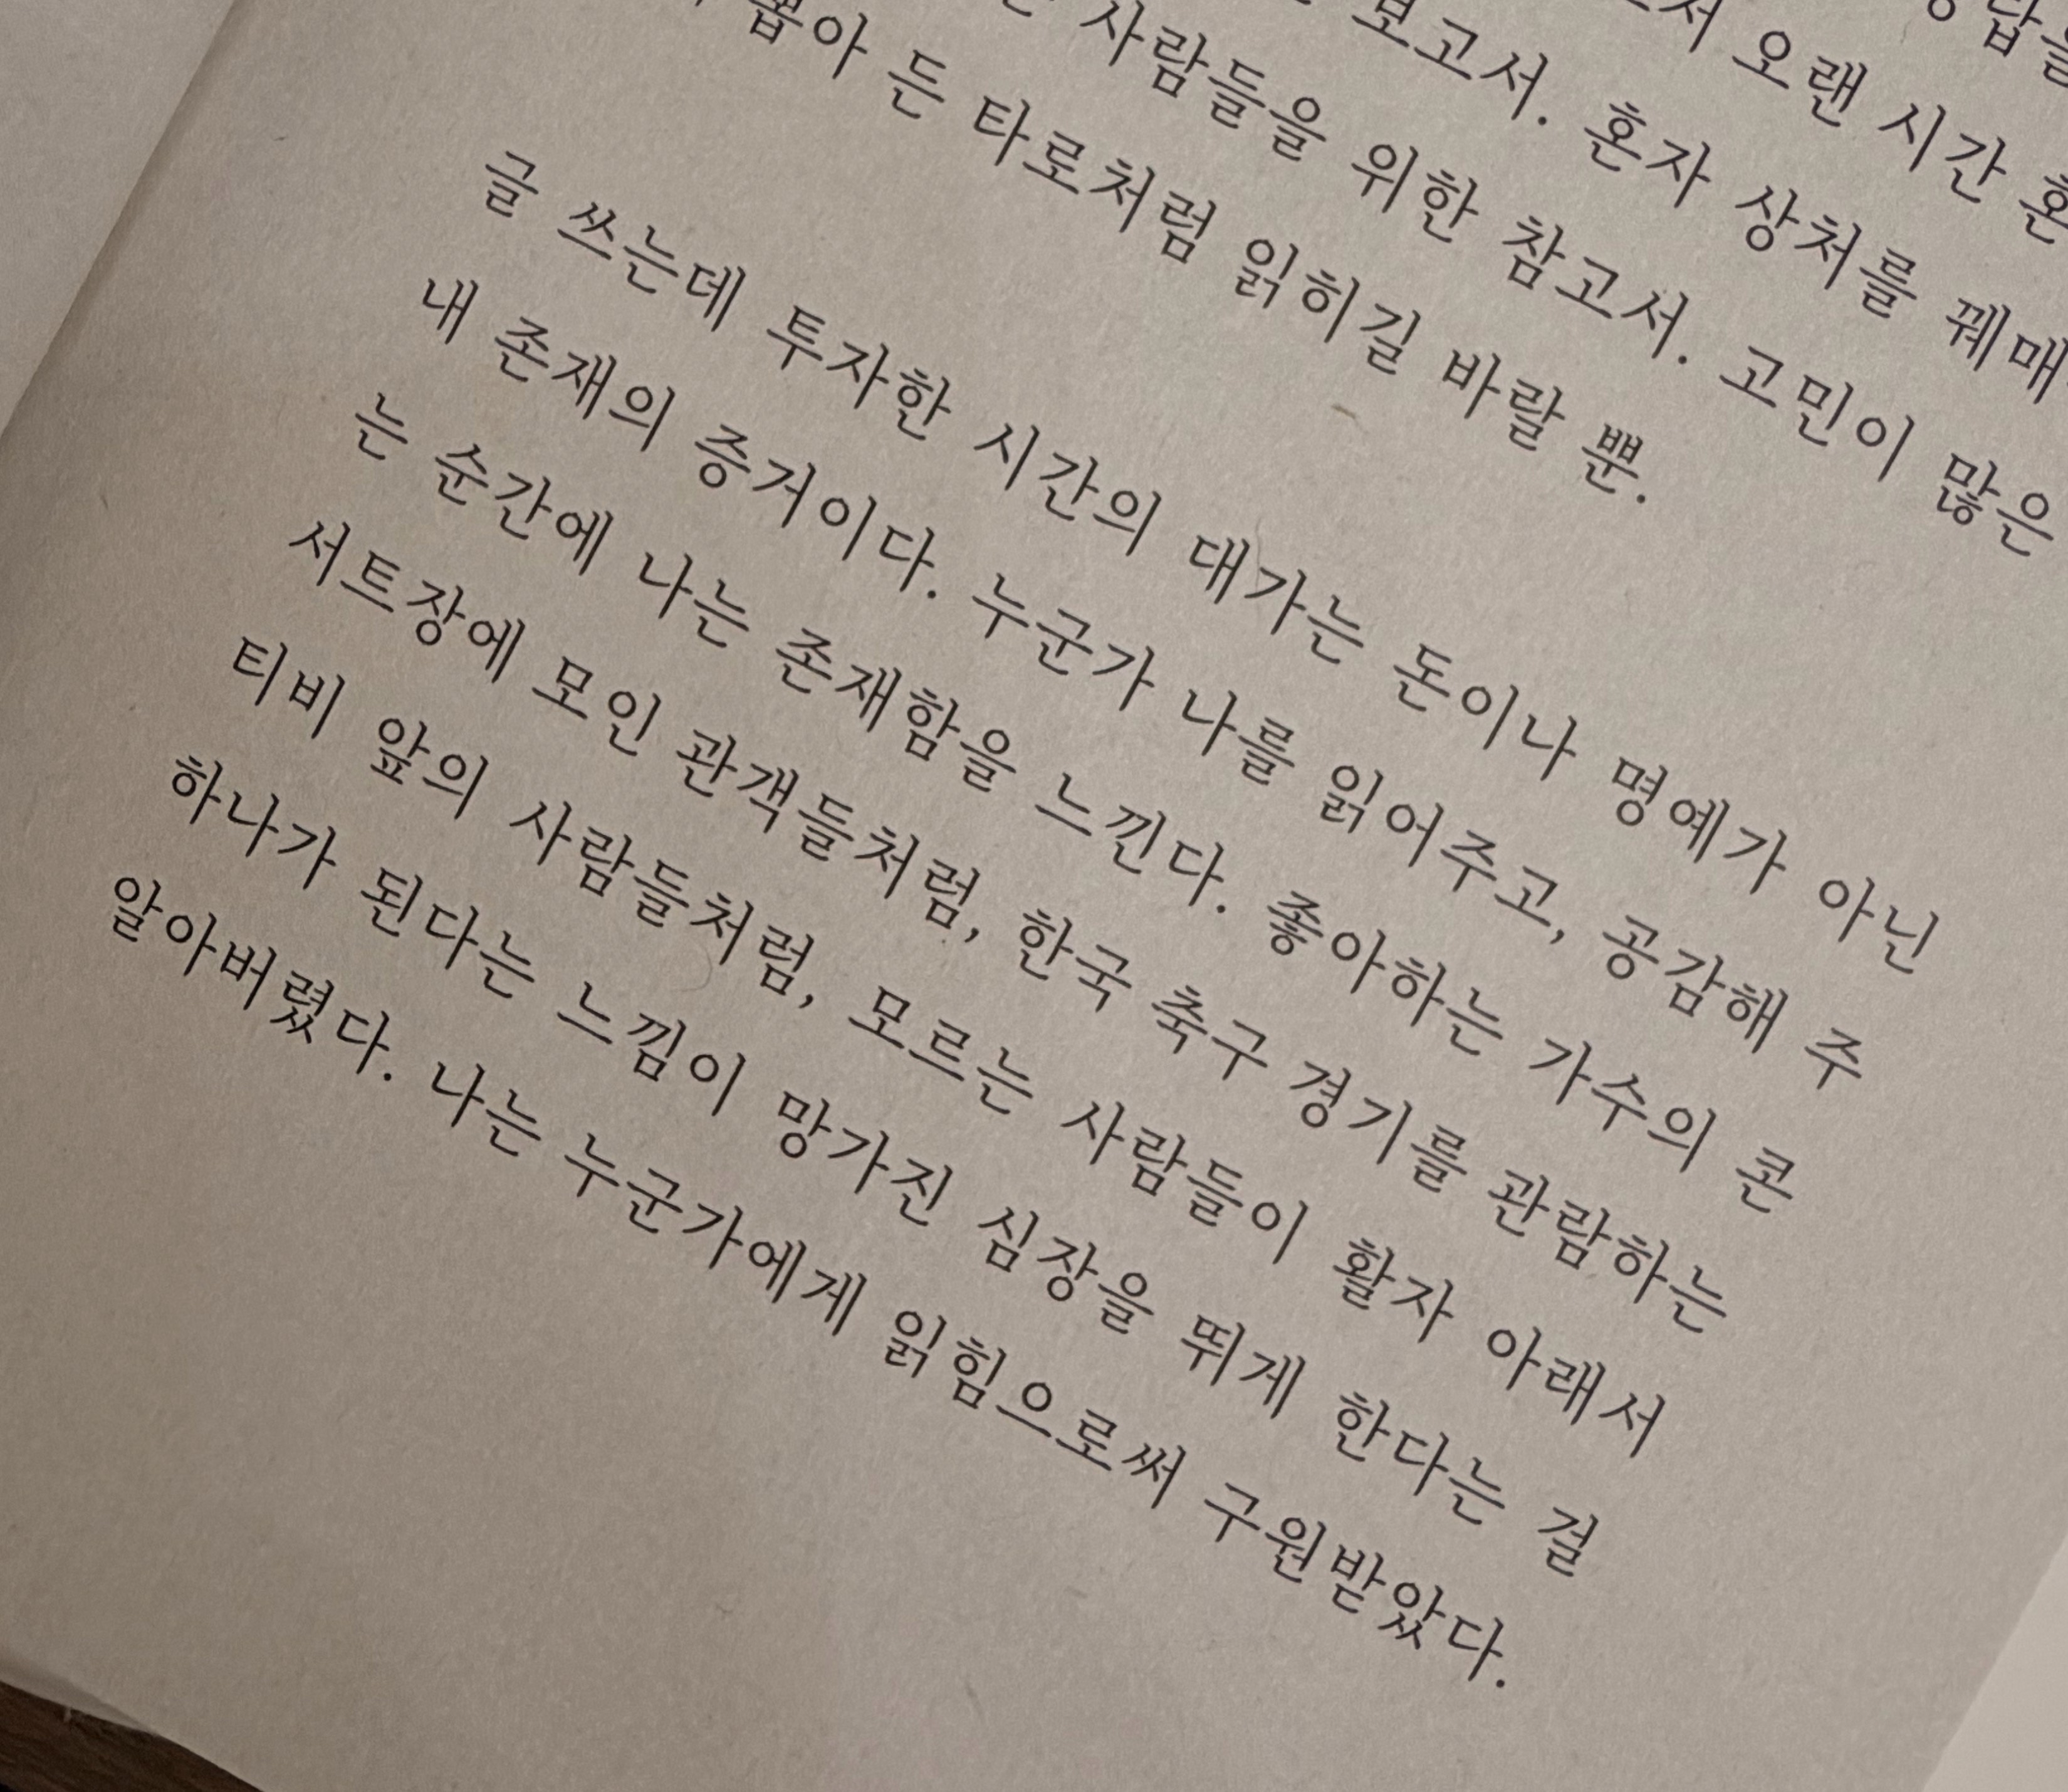 오랜 시간
보고서. 혼자 상처를 꿰매
사람들을 위한 참고서. 고민이 많은
뽑아 든 타로처럼 읽히길 바랄 뿐.
글 쓰는데 투자한 시간의 대가는 돈이나 명예가 아닌
내 존재의 증거이다. 누군가 나를 읽어주고, 공감해 주
는 순간에 나는 존재함을 느낀다. 좋아하는 가수의 콘
서트장에 모인 관객들처럼, 한국 축구 경기를 관람하는
티비 앞의 사람들처럼, 모르는 사람들이 활자 아래서
하나가 된다는 느낌이 망가진 심장을 뛰게 한다는 걸
알아버렸다. 나는 누군가에게 읽힘으로써 구원받았다.